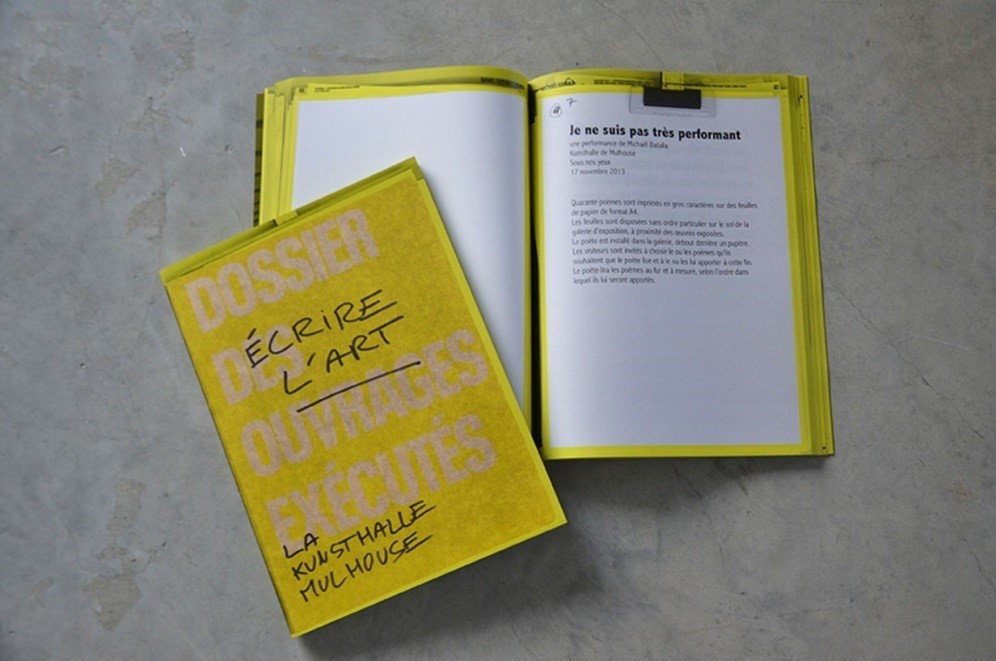 DOSSIER
DES
OUVRAGES
EXÉCUTÉS
ÉCRIRE
L'ART
LA
KUNSTHALLE
MULHOUSE
7
Je ne suis pas très performant
une performance de Michaël Batalla
Kunsthalle de Mulhouse
Sous nos yeux
17 novembre 2013
Quarante poèmes sont imprimés en gros caractères sur des feuilles
de papier de format A4.
Les feuilles sont disposées sans ordre particulier sur le sol de la
galerie d'exposition, à proximité des œuvres exposées.
Le poète est installé dans la galerie, debout derrière un pupitre.
Les visiteurs sont invités à choisir le ou les poèmes qu'ils
souhaitent que le poète lise et à le ou les lui apporter à cette fin.
Le poète lira les poèmes au fur et à mesure, selon l'ordre dans
lequel ils lui seront apportés.